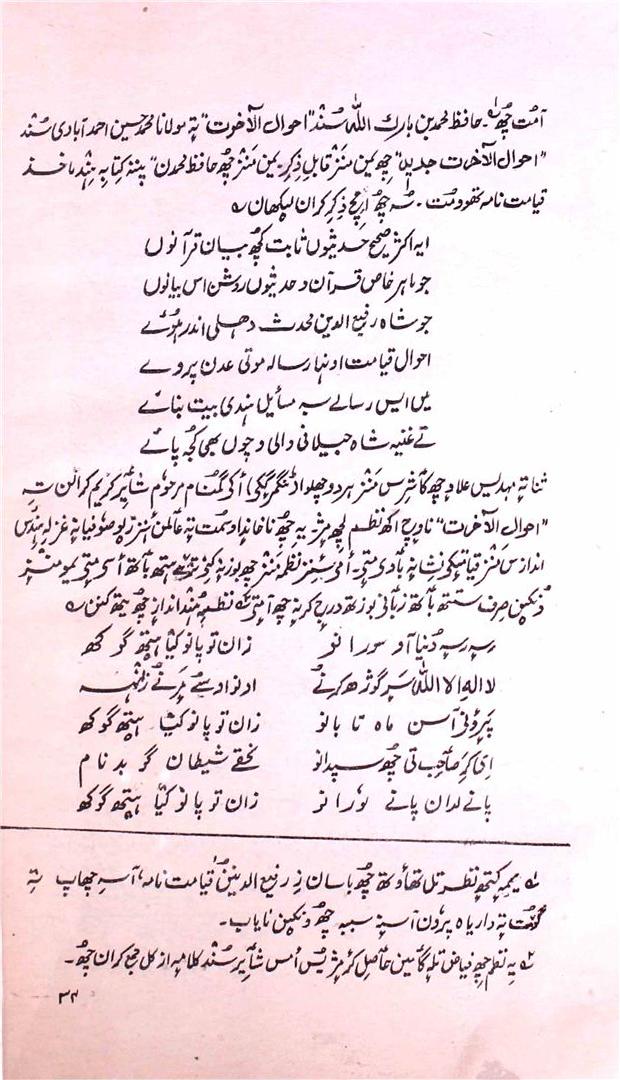 آمُت چھُ۔ حافظ محمد بن بارک اللہ سُند "احوال الآخرت" تہٕ مولانا محمد حسین احمد آبادی سُند
"احوال الآخرت جدید" چھِ یمن منٛز قابلِ ذِکر۔ یمن منٛز چھُ حافظ محمدن" پننہِ کتابہِ ہُند ماخذ
قیامت نامہ تھوومُت۔ سُہ چھُ امِچ ذِکر کران لیکھان ؎
ایہ اکثر صحیح حدیثوں ثابت کُچھ بیان قرآنوں
جو ماہر خاص قرآن و حدیثوں روشن اس بیانوں
جو شاہ رفیع الدین محدث دھلی اندر ہوئے
احوال قیامت اونہا رسالہ موتی عدن پروے
میں ایس رسالے سبہ مسایل ہندی بیت بنائے
تے غنیہ شاہ جیلانی والی وچوں بھی کُجھ پائے
ثنا تہٕ مہدیس علاوہ چھُ کٲشرس منٛز ہردو چھلو اڈنگمر گُکۍ أکۍ گُمنام مرحوم شٲعِر کریم کرالن تہِ
"احوال الآخرت" ناوٕچ اکھ نظم لیچھمٕژ یہِ چھُ
اندازس منٛز قیامتچہِ نشانہِ باوِمتۍ۔ أمۍ سٕنز نظم منٛز چھِ
صرف ستتھ باتھ زبانی بوزتھ درج کرنہٕ چھِ آمتۍ۔ نظمہِ ہُند انداز چھُ یتھ کنۍ ؎
رسہ رسہ دُنیا آو سورانو زان تو پانو کیا ہیتھ گوکھ
لا الہ الا اللہ سپر گوژھ کرنے
پرونۍ آسن ماہ تابانو زان تو پانو کیا ہیتھ گوکھ
ای کر صٲحب تی چھُ سپدانو نحقے شیطان گو بدنام
پانے لدان پانے لورانو زان تو پانو کیا ہیتھ گوکھ
؎ یمہِ کتھہِ نظرِ تل تھٲوتھ چھُ باسان زِ رفیع الدینُن قیامت نامہٕ آسہِ چھاپ تہِ
گومُت تہٕ داریاہ پرون آسنہٕ سببہ چھُ ونکین نایاب۔
؎ یہِ نظم چھِ فیاض تلہٕ گامین حٲصِل کرمٕژ یُس أمس شٲعِر سُند کلامہِ ازکل جمع کران چھُ۔
۳۴